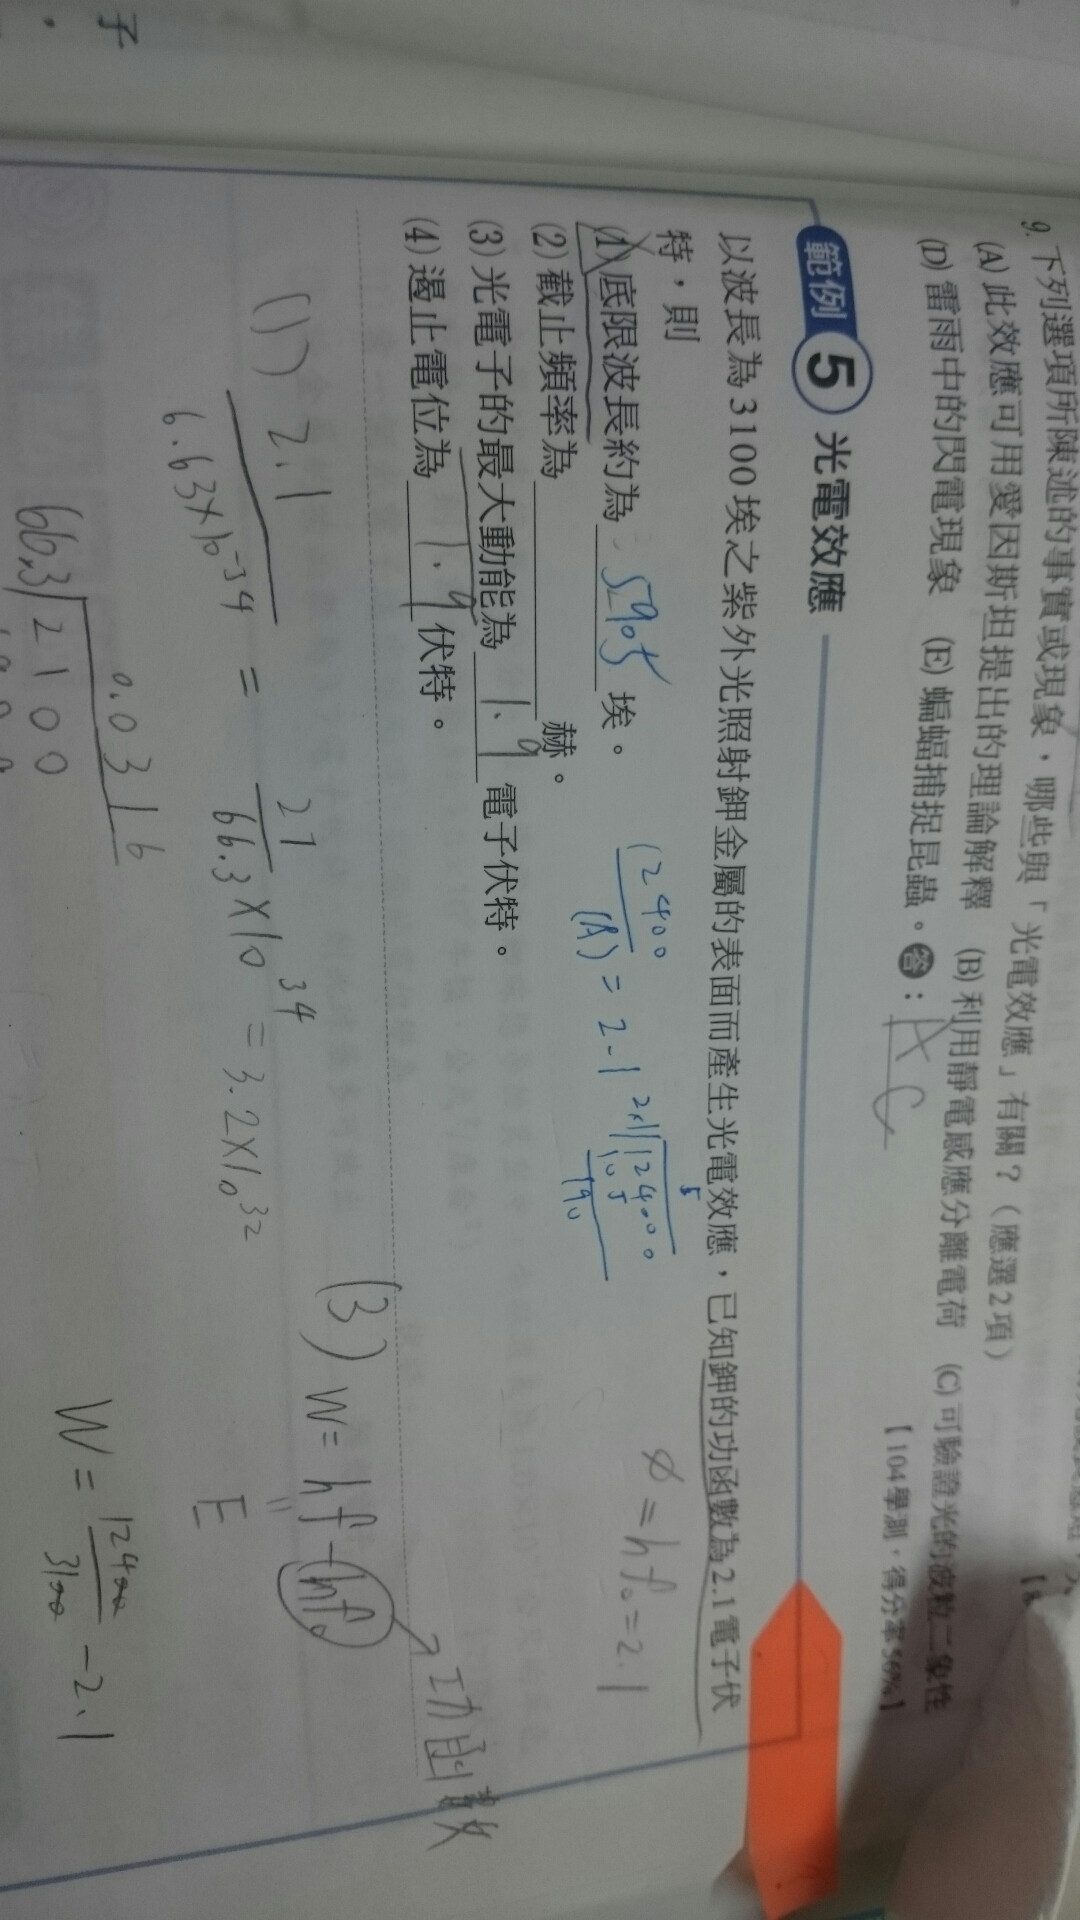 子
9. 下列選項所陳述的事實或現象，哪些與「光電效應」有關？（應選2項）
(A) 此效應可用愛因斯坦提出的理論解釋 (B) 利用靜電感應分離電荷 (C) 可驗證光的波粒二象性
(D) 雷雨中的閃電現象 (E) 蝙蝠捕捉昆蟲。答：AC
【104學測，得分率56%】
範例 5 光電效應
以波長為3100埃之紫外光照射鉀金屬的表面而產生光電效應，已知鉀的功函數為2.1電子伏
特，則
(1) 底限波長約為 5905 埃。
(2) 截止頻率為 赫。
(3) 光電子的最大動能為 1.9 電子伏特。
(4) 遏止電位為 1.9 伏特。
12400
(A) = 2.1
5
2.1 124000
105
190
φ = hf₀ = 2.1
(1) 2.1
6.63×10⁻³⁴ = 21
66.3×10³⁴ = 3.2×10³²
0.0316
66.3 2100
(3) W = hf - hf₀
工力函數
= E
W = 12400
3100 - 2.1